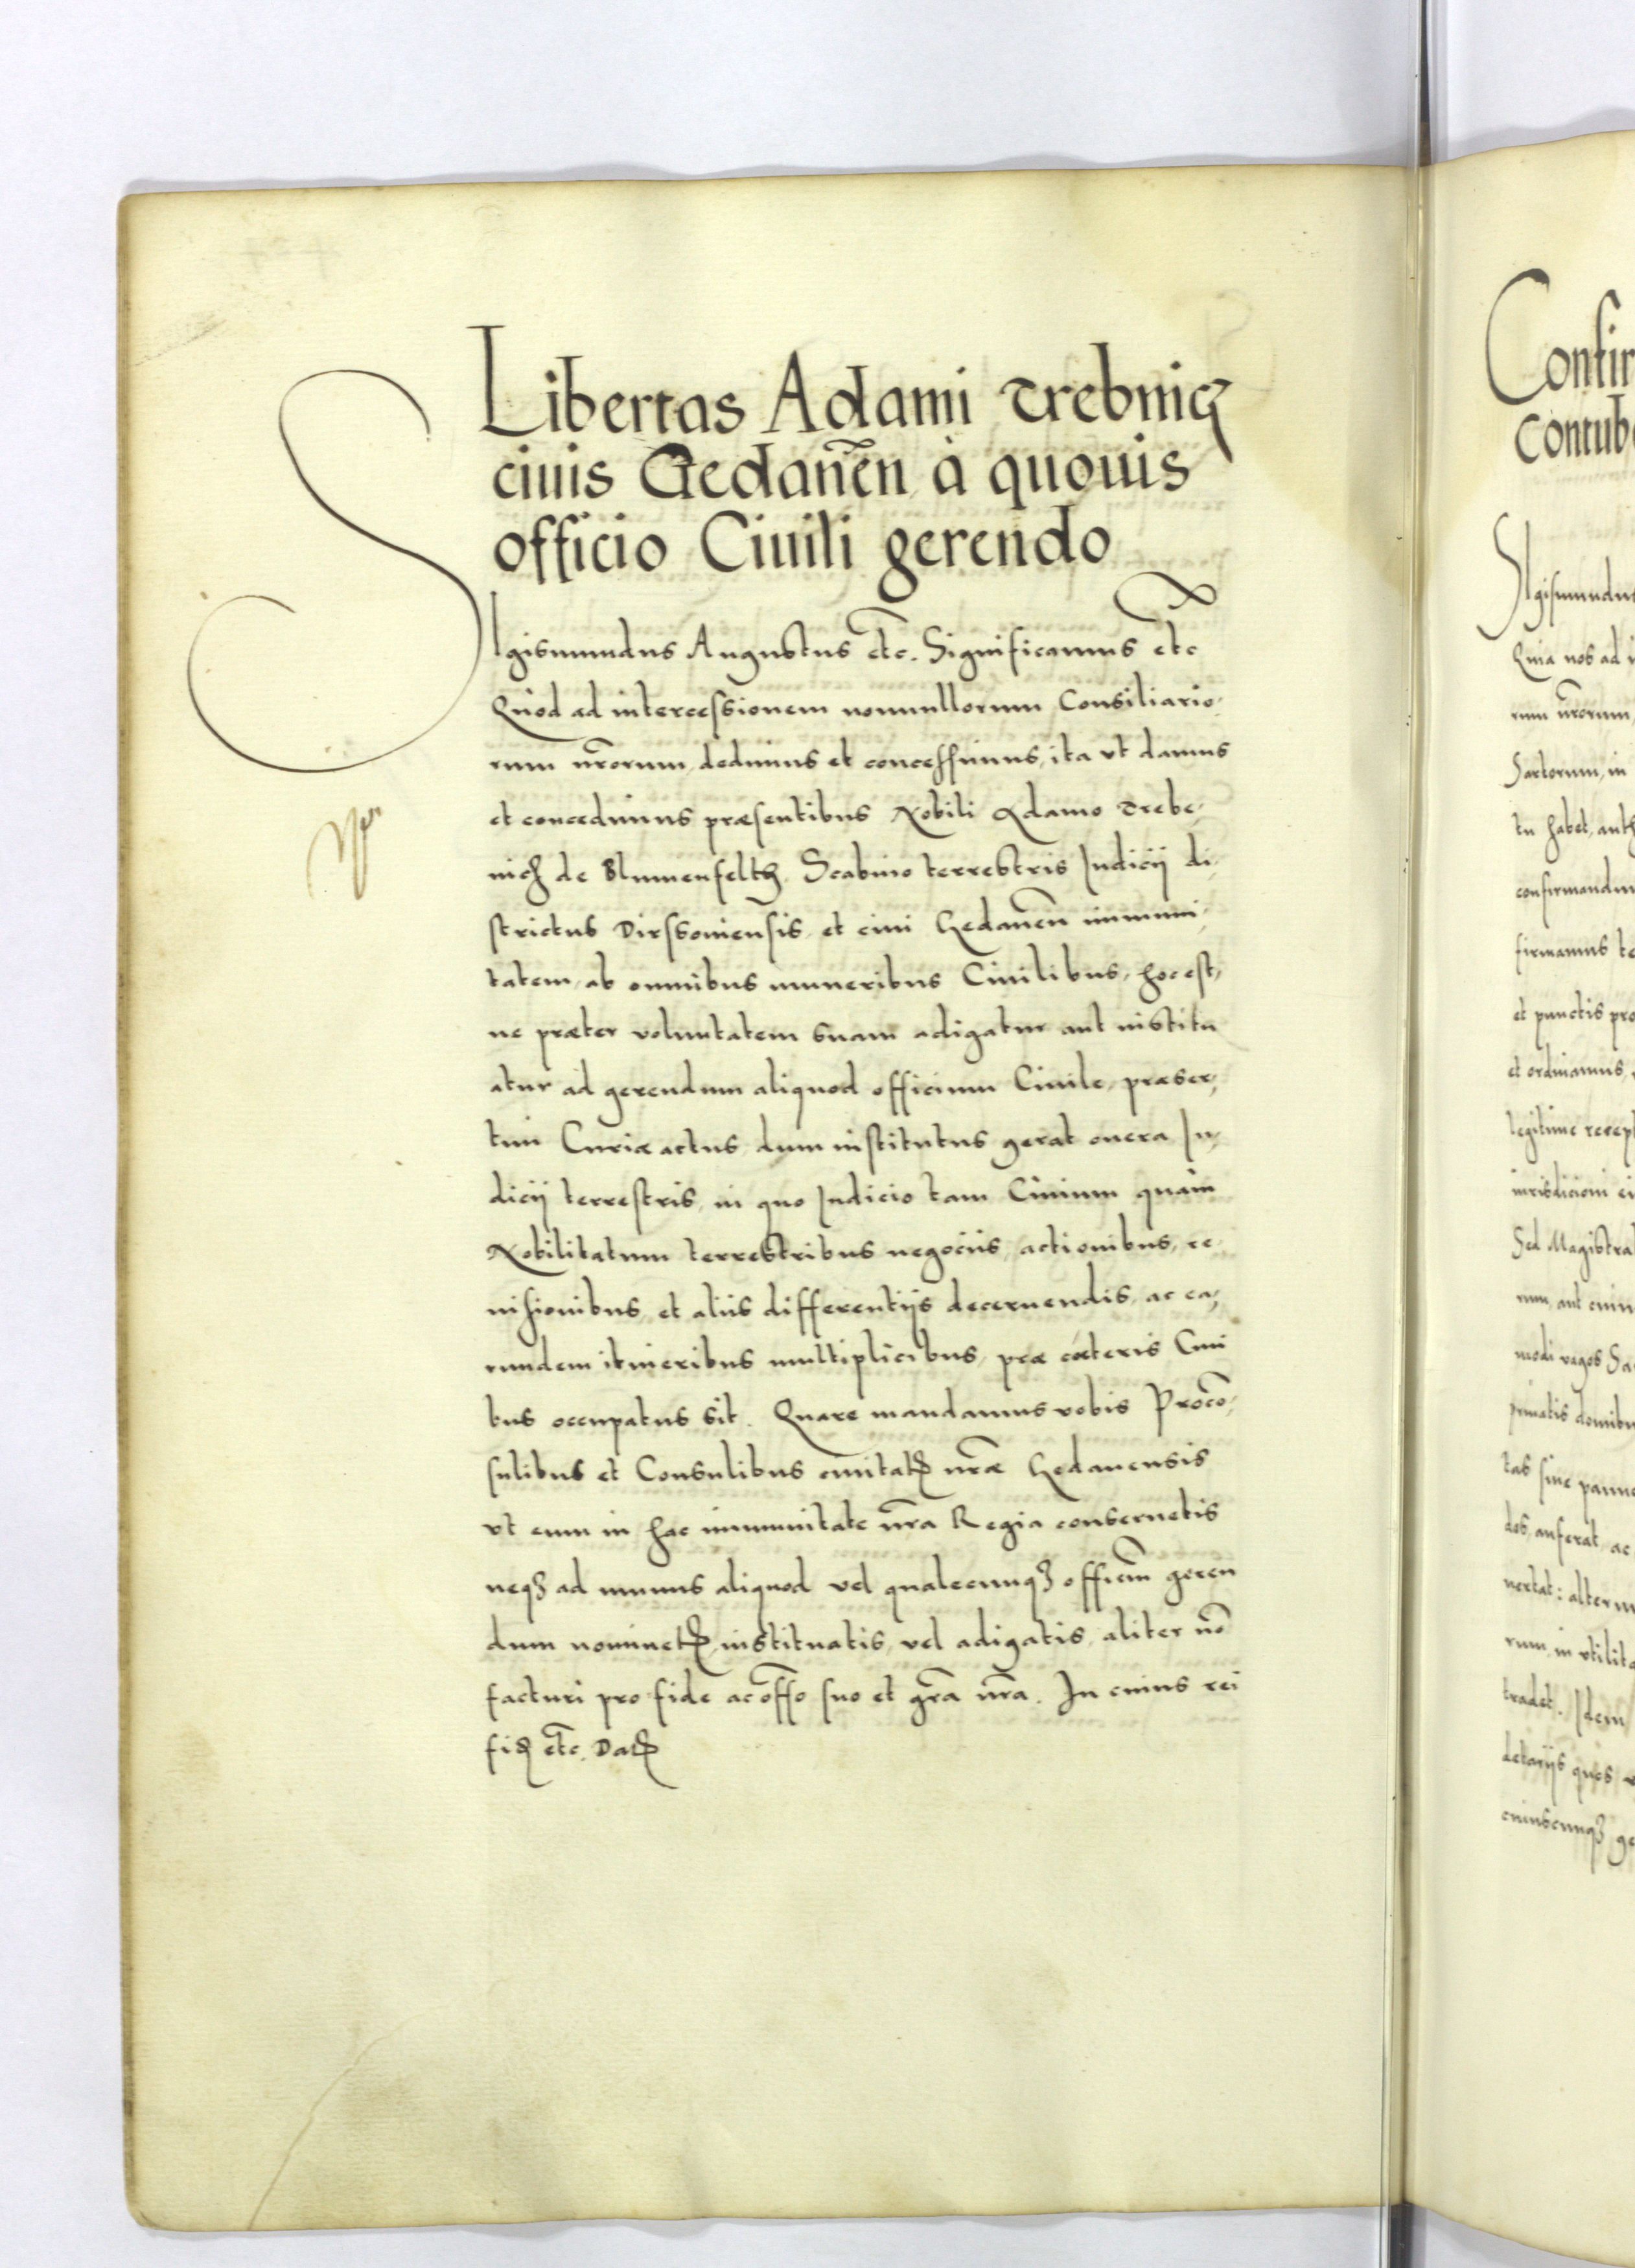 Libertas Adami Trebnicz
ciuis Gedanen̄ à quouis
officio Ciuili gerendo
SIgismundus Augustus etc. Significamus etc
Quod ad intercessionem nonnullorum Consiliario-
rum nr̄orum, dedimus et concessimus, ita vt damus
et concedimus præsentibus Nobili Adamo Trebe-
nicz de Blumenfeltz, Scabino terrestris Iudicij di-
strictus Dirssouiensis, et ciui Gedanen̄ immuni-
tatem, ab omnibus muneribus Ciuilibus, hoc est,
ne præter voluntatem suam adigatur aut institu
atur ad gerendum aliquod officium Ciuile, præser-
tim Curiæ actus, dum institutus gerat onera Iu-
dicij terrestris, in quo Iudicio tam Ciuium quàm
Nobilitatum terrestribus negociis, actionibus, re-
uisionibus, et aliis differentijs decernendis, ac ea-
rundem itineribus multiplicibus, præ cæteris Ciui
bus occupatus sit. Quare mandamus vobis Procō-
sulibus et Consulibus ciuitatꝭ nr̄æ Gedanensis
vt eum in hac immunitate nr̄a Regia conseruetis
neqꝫ ad munus aliquod vel qualecunqꝫ officiū geren
dum nominetꝭ, instituatis, vel adigatis, aliter nō
facturi pro fide ac off̄o suo et gr̄a nr̄a. In cuius rei
fiꝭ etc. Datꝭ
Confir
Contub
SIgismundus
Quia nos ad i
rum nr̄orum,
Sartorum, in
tu habet, auth
confirmandum
firmamus te
et punctis pro
et ordinamus,
legitime recept
iurisdicioni ei
Sed Magistra
modi vagos Sa
priuatis domibu
tas siue panno
dos, auferat, ac
uertat: alteru
rum, in vtilita
tradet. Idem
detarijs quos
cuiuscunqꝫ ge